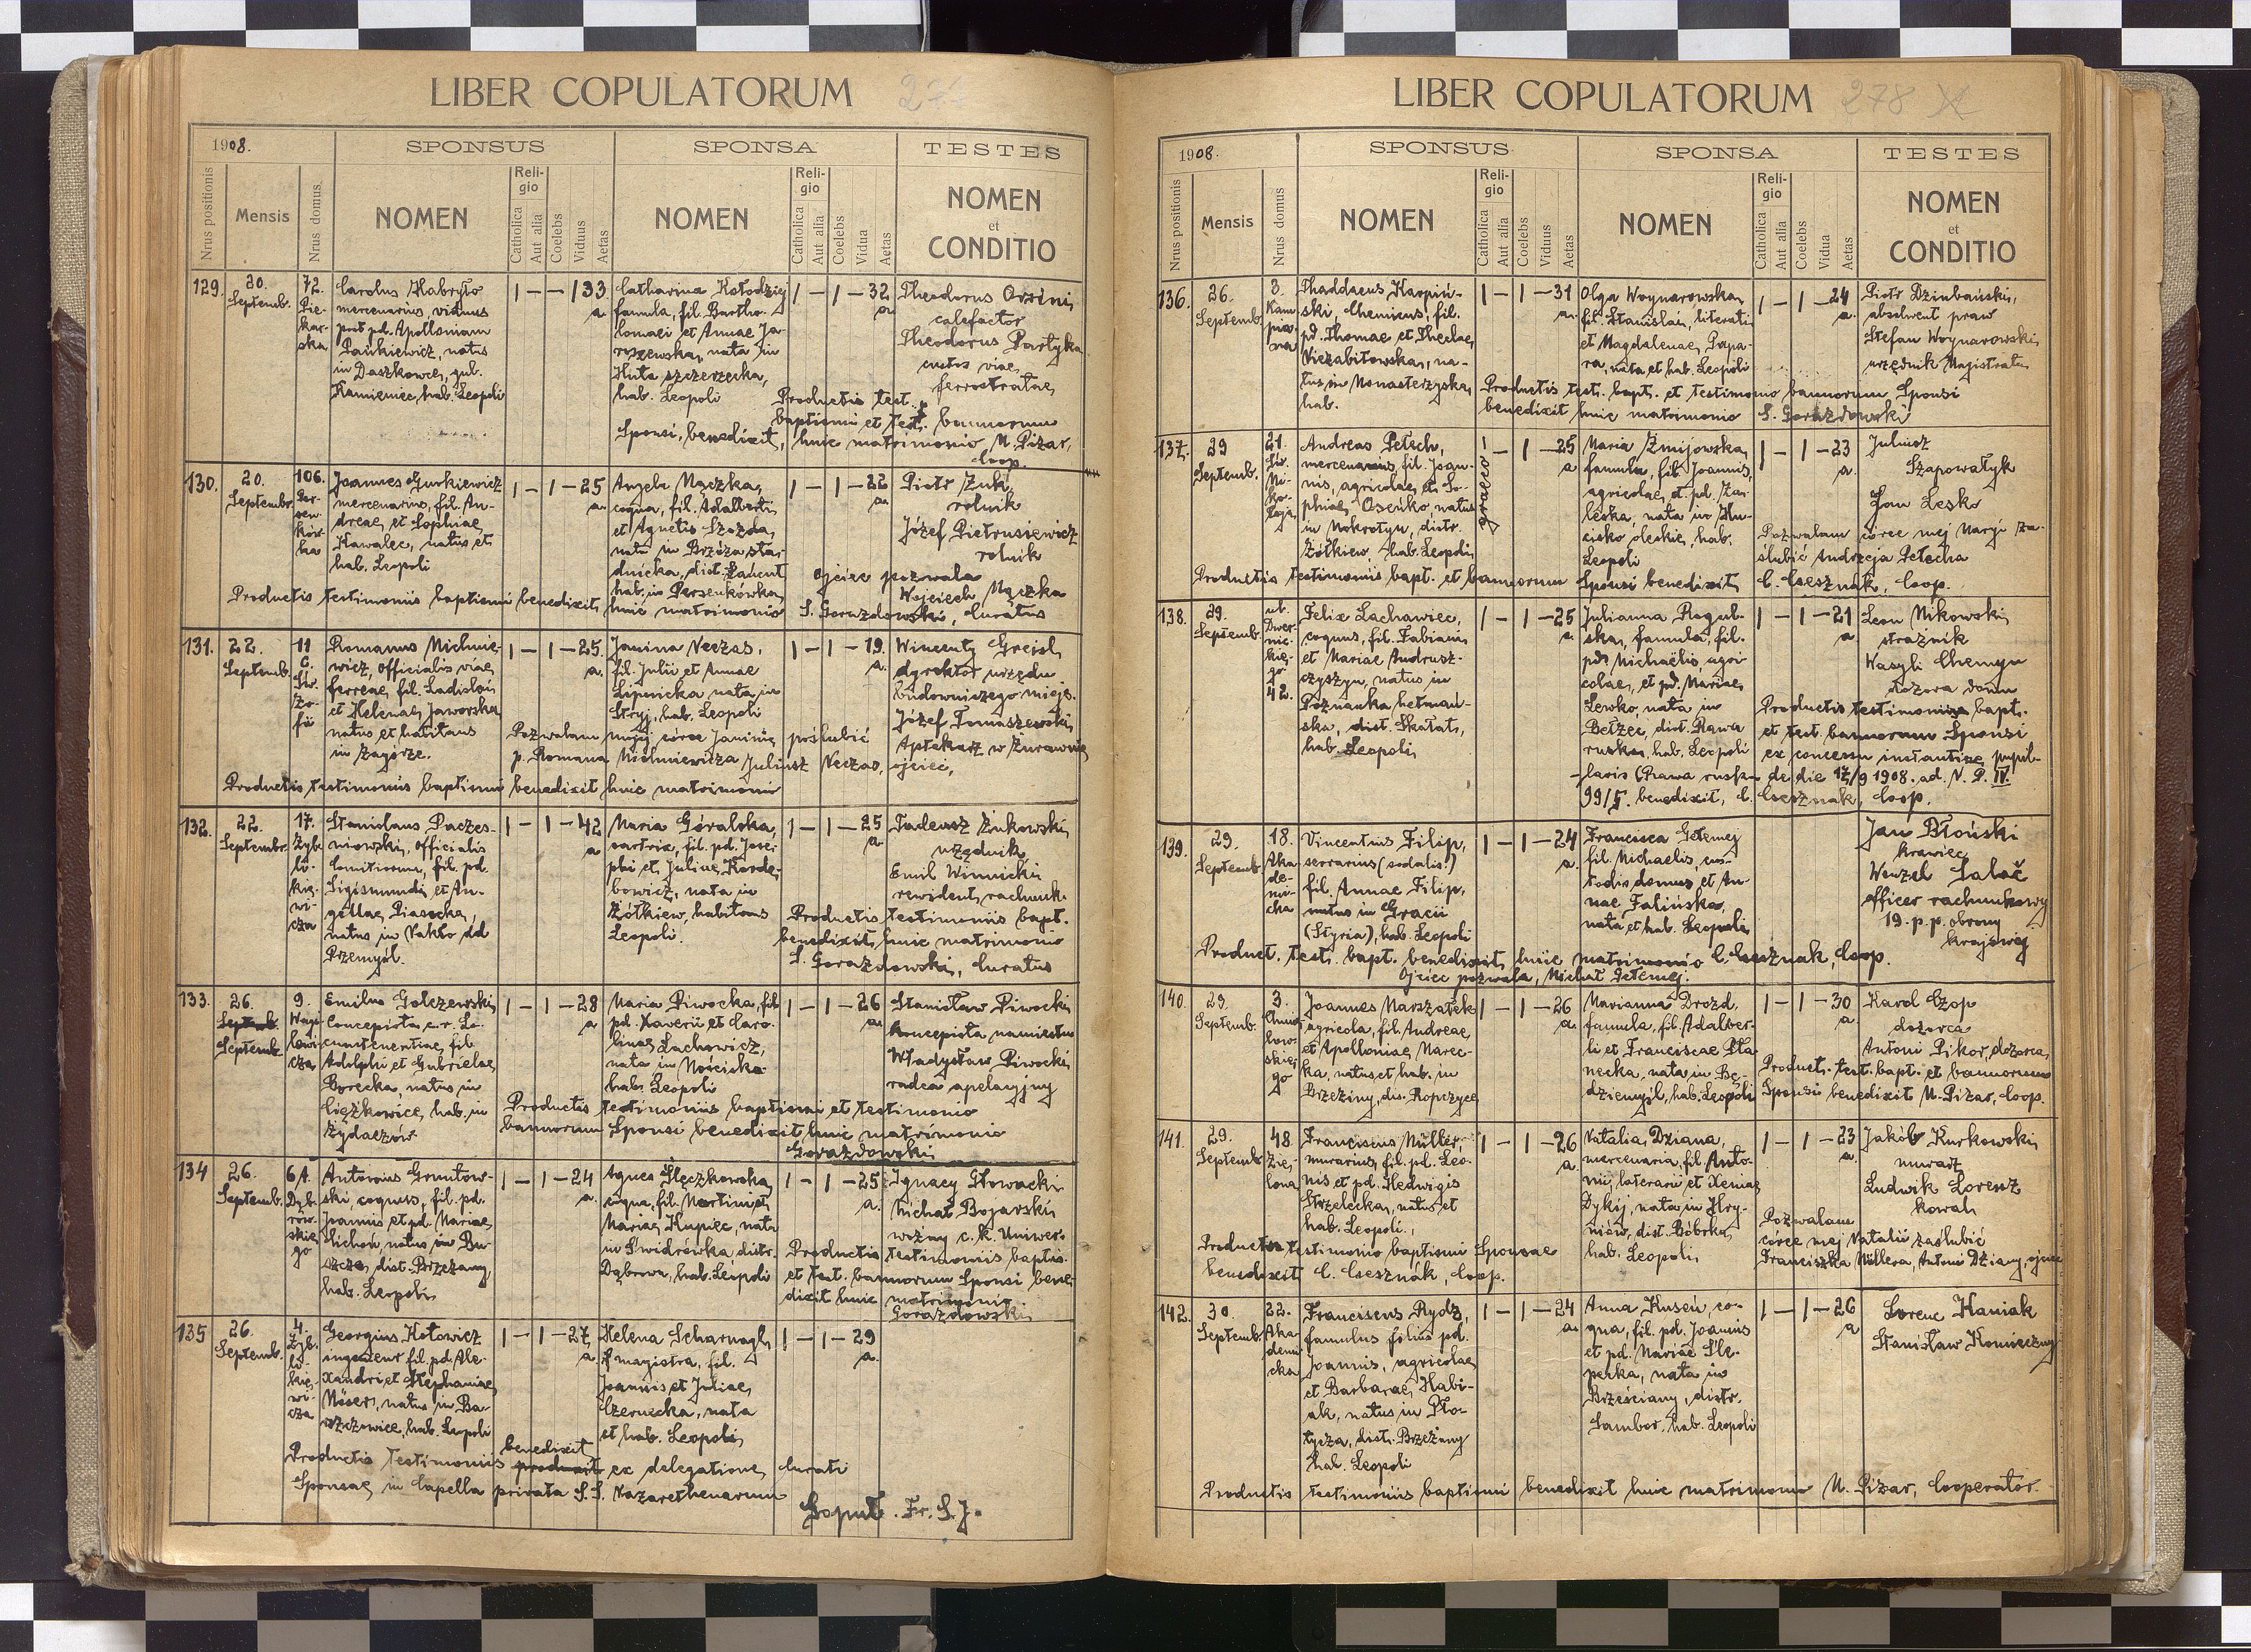 LIBER COPULATORUM
1908.
SPONSUS
SPONSA
TESTES
Nrus positionis
Mensis
Nrus domus
NOMEN
Religio
Catholica
Aut alia
Coelebs
Viduus
Aetas
NOMEN
Religio
Catholica
Aut alia
Coelebs
Vidua
Aetas
NOMEN
et
CONDITIO
129.
20.
Septemb.
72.
Pie-
kar-
ska
Carolus Habryło
mercenarius, viduus
post pd. Apolloniam
Pankiewicz, natus
in Daszkowce, gub.
Kamieniec, hab. Leopoli
1 — — 1 33
a.
Catharina Kołodziej
famula, fil. Bartho-
lomaei et Annae Ja-
roszewska, nata in
Huta szczerzecka,
hab. Leopoli
1 — 1 — 32
a.
Theodorus Orsini
calefactor
Theodorus Partyka
custos viae
ferrostratae
Productis test.
baptismi et test. bannorum
Sponsi, benedixit, huic matrimonio M. Pizar,
Coop.
130.
20.
Septemb.
106.
Per-
sen-
ków-
ka
Joannes Gurkiewicz
mercenarius, fil. An-
dreae et Sophiae
Kawalec, natus et
hab. Leopoli
1 — 1 — 25
a.
Angela Mączka,
coqua, fil. Adalberti
et Agnetis Szozda,
nata in Brzóza sta-
dnicka, dist. Łańcut
hab. in Persenkówka
1 — 1 — 22
a.
Piotr Żuk,
rolnik
Józef Pietrusiewicz
rolnik
Ojciec pozwala
Wojciech Mączka
Productis testimoniis baptismi benedixit huic matrimonio S. Gorazdowski, Curatus
131.
22.
Septemb.
11
c.
Św.
Zo-
fii
Romanus Michnie-
wicz, officialis viae
ferreae, fil. Ladislai
et Helenae Jaworska
natus et habitans
in Zagórze.
1 — 1 — 25.
a.
Janina Neczas,
fil. Julii et Annae
Lipnicka nata in
Stryj, hab. Leopoli
1 — 1 — 19.
a.
Wincenty Greisl
dyrektor urzędu
budowniczego miejs.
Józef Tomaszewski
Aptekarz w Żurawnie
Pozwalam mojej córce Janinie poślubić
p. Romana Michniewicza Juliusz Neczas, ojciec,
Productis testimoniis baptismi benedixit huic matrimonio
132.
22.
Septembr.
17.
Zybl-
li-
kie-
wi-
cza
Stanislaus Paczes-
niowski, officialis
Comitiorum, fil. pd.
Sigismundi et An-
gellae Piasecka,
natus in Nakło ad
Przemyśl.
1 — 1 — 42
a
Maria Góralska,
sartrix, fil. pd. Jose-
phi et Juliae Korde-
bowicz, nata in
Żółkiew, habitans
Leopoli.
1 — 1 — 25
a.
Tadeusz Żukowski,
urzędnik
Emil Winnicki
rewident rachunk.
Productis testimoniis bapt.
benedixit huic matrimonio
S. Gorazdowski, Curatus
133.
26.
Septemb.
Septemb.
9.
Wagi-
lewi-
cza
Emilus Golczewski,
Concepista c. r. Lo-
cumtenentiae, fil.
Adolphi et Gabrielae
Borecka, natus in
Ciężkowice, hab. in
Żydaczów
1 — 1 — 28
a
Maria Piwocka, fil.
pd. Xaverii et Caro-
linae Lachowicz,
nata in Mościska
hab. Leopoli
1 — 1 — 26
a.
Stanisław Piwocki
koncepista namiestn
Władysław Piwocki
radca apelacyjny
Productis testimoniis baptismi et testimonio
bannorum Sponsi benedixit huic matrimonio
Gorazdowski
134
26.
Septemb.
61.
Dyb-
row-
skie
go
Antonius Gruntow-
ski, coquus, fil. pd.
Joannis et pd. Mariae
Cichoń, natus in Bu-
szcze, dist. Brzeżany,
hab. Leopoli
1 — 1 — 24
a.
Agnes Ślęczkowska
coqua, fil. Martini et
Mariae Kupiec, nata
in Świdrówka, distr.
Dąbrowa, hab. Leopoli
1 — 1 — 25
a.
Ignacy Głowacki
Michał Bojarski
woźny c. k. Uniwers.
Productis testimoniis baptis.
et test. bannorum Sponsi bene-
dixit huic matrimonio
Gorazdowski
135
26.
Septemb.
4.
Zyb-
li-
kie-
wi-
cza
Georgius Kotowicz
ingenieur fil. pd. Ale-
xandri et Stephaniae
Möser, natus in Ba-
ryczowice, hab. Leopoli
1 — 1 — 27
a.
Helena Scharnagl,
magistra, fil.
Joannis et Juliae
Czernecka, nata
et hab. Leopoli
1 — 1 — 29
a.
benedixit
Productis testimoniis produxit ex delegatione Curati
Sponsae in Capella privata S.S. Nazarethenarum
Fr. S. J.
LIBER COPULATORUM
278
1908.
SPONSUS
SPONSA
TESTES
Nrus positionis
Mensis
Nrus domus
NOMEN
Religio
Catholica
Aut alia
Coelebs
Viduus
Aetas
NOMEN
Religio
Catholica
Aut alia
Coelebs
Vidua
Aetas
NOMEN
et
CONDITIO
136.
26.
Septemb.
3.
Kam
pia-
na
Thaddaeus Karpiń-
ski, Chemicus, fil.
pd. Thomae et Theclae
Niezabitowska, na-
tus in Monasterzyska,
hab.
1 — 1 — 31
a.
Olga Woynarowska,
fil. Stanislai, literati
et Magdalenae Papa-
ra, nata et hab. Leopoli
1 — 1 — 24
a.
Piotr Dziubański,
absolwent praw
Stefan Woynarowski,
urzędnik Magistratu
Productis test. bapt. et testimonio bannorum Sponsi
benedixit huic matrimonio S. Gorazdowski
137.
29
Septemb.
21.
Św.
Mi-
ko-
łaja
Andreas Petech,
mercenarius, fil. Joan-
nis, agricolae et So-
phiae Oseńko, natus
in Mokrotyn, distr.
Żółkiew, hab. Leopoli
graeco
1 — 25
a
Maria Żmijowska,
famula, fil. Joannis,
agricolae, et pd. Za-
leska, nata in Hu-
cisko oleskie, hab.
Leopoli
1 — 1 — 23
a.
Juliusz
Szapowałyk
Jan Lesko
Pozwalam córce mej Maryi za-
ślubić Andrzeja Petecha
Productis testimoniis bapt. et bannorum Sponsi benedixit C. Csesznák, Coop.
138.
29.
Septemb.
ul.
Dwer-
nic-
kie-
go
42.
Felix Lachawiec,
coquus, fil. Fabiani
et Mariae Andrusz-
czyszyn, natus in
Poznanka hetmań-
ska, dist. Skałat,
hab. Leopoli
1 — 1 — 25
a.
Julianna Rogul-
ska, famula, fil.
pd. Michaëlis, agri-
colae, et pd. Mariae
Lewko, nata in
Bełzec, dist. Rawa
ruska, hab. Leopoli
1 — 1 — 21
a.
Leon Nikowski,
strażnik
Wasyli Chemyn
dozorca domu
Productis testimoniis bapt.
et test. bannorum Sponsi
ex concessu instantiae pupil-
laris (Rawa ruska de die 17/9 1908. ad. N. P. IV.
99/5. benedixit, C. Csesznak, Coop.
139.
29.
Septemb.
18.
Aka
de-
mi-
cka
Vincentius Filip,
serrarius (sodalis)
fil. Annae Filip,
natus in Gracii
(Styria), hab. Leopoli
1 — 1 — 24
a.
Francisca Gełemej
fil. Michaelis, cus-
todis domus et An-
nae Falińska,
nata et hab. Leopoli
Jan Błoński
krawiec
Wenzel Salač
officer rachunkowy
19. p. p. obrony
krajowej
Product. test. bapt. benedixit, huic matrimonio C. Csesznak, Coop.
Ojciec pozwala, Michał Gełemej.
140.
29.
Septemb.
3.
Chmie
low-
skie-
go
Joannes Marszałek
agricola, fil. Andreae
et Apolloniae Marec-
ka, natus et hab. in
Brzeziny, dis. Ropczyce
1 — 1 — 26
a.
Marianna Drozd,
famula, fil. Adalber-
ti et Franciscae Pła-
necka, nata in Bę-
dziemyśl, hab. Leopoli
1 — 1 — 30
a.
Karol Czop
dozorca
Antoni Pikor, dozorca,
Product. test. bapt. et bannorum
Sponsi benedixit M. Pizar, Coop.
141.
29.
Septemb.
48.
Zie-
lona
Franciscus Müller,
murarius, fil. pd. Leo-
nis et pd. Hedwigis
Strzelecka, natus et
hab. Leopoli.
1 — 1 — 26
a.
Natalia Dziana,
mercenaria, fil. Anto-
nii, laterarii et Xeniae
Dykij, nata in Hry-
niów, dist. Bóbrka,
hab. Leopoli
1 — 1 — 23
a.
Jakób Kurkowski
murarz
Ludwik Lorenz
kowal
Pozwalam
córce mej Natalii zaślubić
Franciszka Müllera, Antoni Dziany, ojciec
Productis testimonio baptismi Sponsae
benedixit C. Csesznák, Coop.
142.
30.
Septemb.
22.
Aka
demi
cka
Franciscus Rydz,
famulus filius pd.
Joannis, agricolae
et Barbarae Habi-
ak, natus in Pło-
tycza, distr. Brzeżany
hab. Leopoli
1 — 1 — 24
a.
Anna Kuseń co-
qua, fil. pd. Joannis
et pd. Mariae Śle-
pecka, nata in
Brześciany, distr.
Sambor, hab. Leopoli
1 — 1 — 26
a
Lorenc Haniak
Stanisław Konieczny
Productis testimoniis baptismi benedixit huic matrimonio M. Pizar, Cooperator.